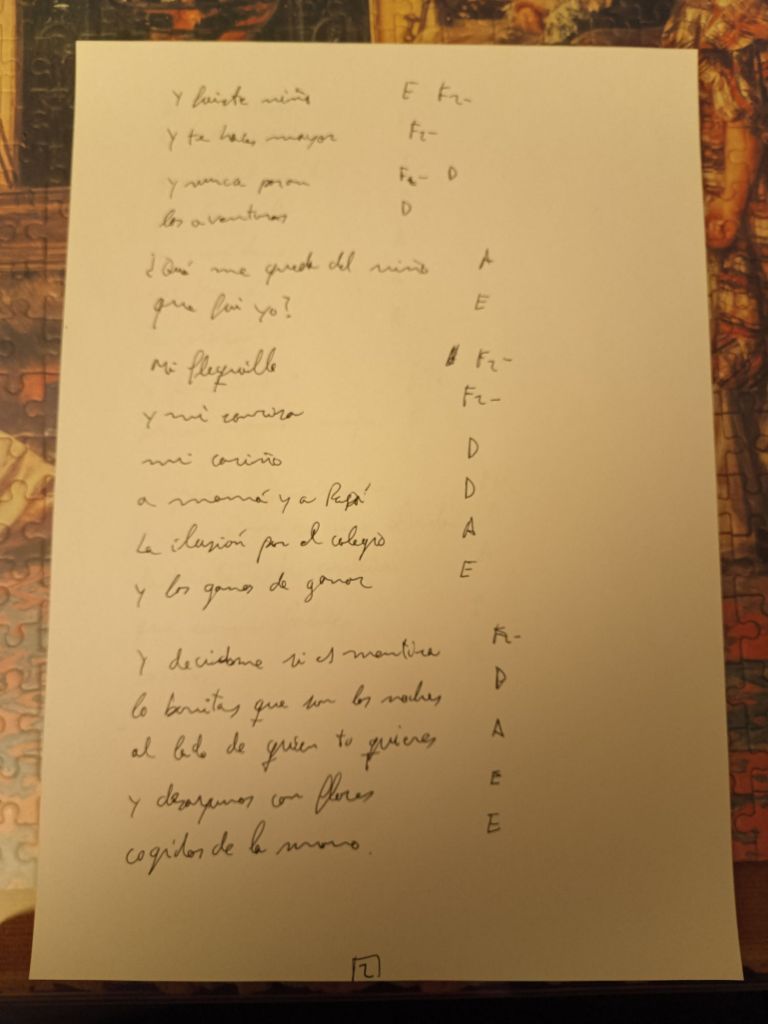 Y fuiste niño E F2-
Y te haces mayor F2-
y nunca paran F2- D
las aventuras D
¿Qué me queda del niño A
que fui yo? E
Mi flequillo F2-
y mi sonrisa F2-
mi cariño D
a mamá y a Papá D
La ilusión por el colegio A
y las ganas de ganar E
Y decidme si es mentira F2-
lo bonitas que son las noches D
al lado de quien tu quieres A
Y con flores E
cogidos de la mano. E
2